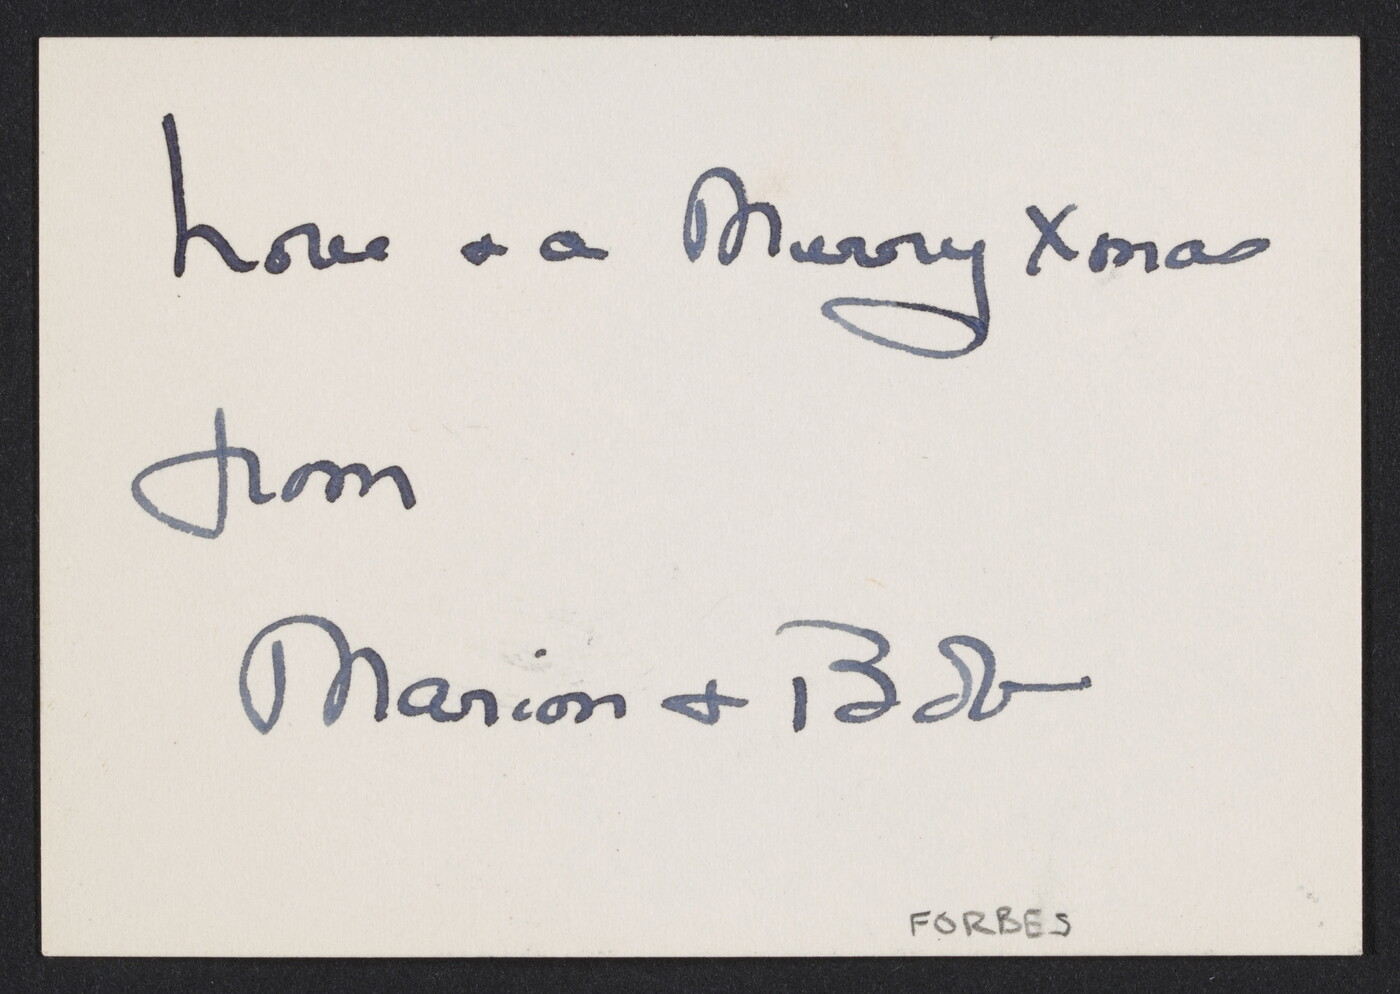 Love + a Merry Xmas
from
Marion + Bob
FORBES